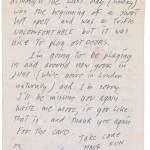 although the last day (sunday)
was the beginning of a short
hot spell and was a trifle
UNCOMFORTABLE but it was
able to play out doors.
I'm going to be playing
in and around new york in
june (while you're in London
naturally) and I'm sorry
I'll be missing you again
write me more, if you like
that is. and thank you again
for the card
Take care
HAVE FUN